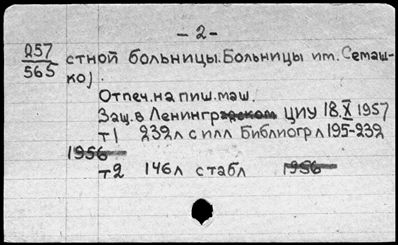 - 2 -
257
565
стной больницы. Больницы им. Семаш-
ко).
Отпеч. на пиш. маш.
Защ. в Ленинградском ЦИУ 18.X 1957
т1 232л с илл Библиогр л 195-232
1956
т2 146л с табл 1956